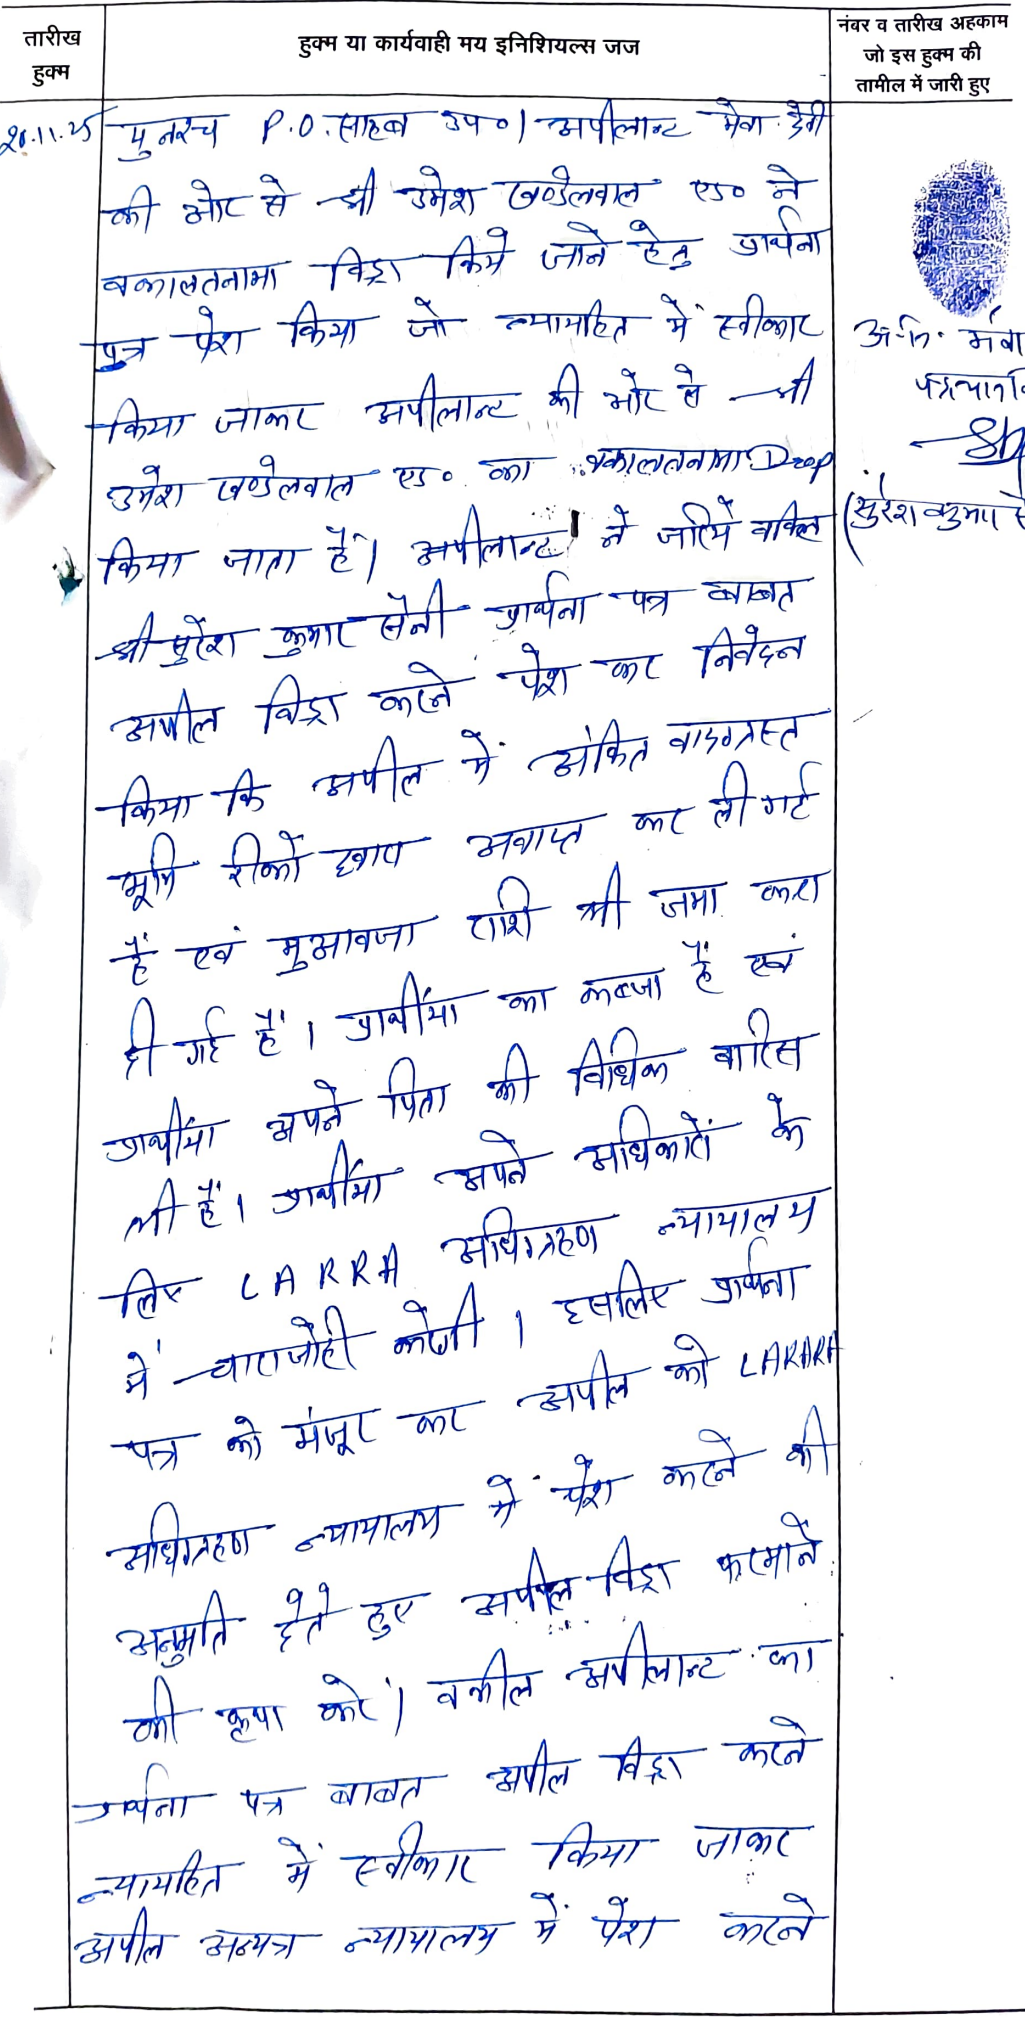 तारीख
हुक्म
हुक्म या कार्यवाही मय इनिशियल्स जज
नंबर व तारीख अहकाम
जो इस हुक्म की
तामील में जारी हुए
20.11.25 पुनश्च P.O. साहब उप०। अपीलान्ट मेवा देवी
की ओर से श्री उमेश खण्डेलवाल एड० ने
वकालतनामा विड्रा किये जाने हेतु प्रार्थना
पत्र पेश किया जो न्यायहित में स्वीकार
किया जाकर अपीलान्ट की ओर से श्री
उमेश खण्डेलवाल एड० का वकालतनामा Drop
किया जाता है। अपीलान्ट ने जरिये वकिल
श्री सुरेश कुमार सैनी प्रार्थना पत्र बाबत
अपील विड्रा करने पेश कर निवेदन
किया कि अपील में अंकित वादग्रस्त
भूमि रीको द्वारा अवाप्त कर ली गई
हैं एवं मुआवजा राशि भी जमा करा
दी गई हैं। प्रार्थीया का कब्जा हैं एवं
प्रार्थीया अपने पिता की विधिक वारिस
भी हैं। प्रार्थीया अपने अधिकारों के
लिए LARRA अधिग्रहण न्यायालय
में चाराजोही करेगी। इसलिए प्रार्थना
पत्र को मंजूर कर अपील को LARARA
अधिग्रहण न्यायालय में पेश करने की
अनुमति देते हुए अपील विड्रा फरमाने
की कृपा करे। वकील अपीलान्ट का
प्रार्थना पत्र बाबत अपील विड्रा करने
न्यायहित में स्वीकार किया जाकर
अपील अन्यत्र न्यायालय में पेश करने
अ.नि. मेवा
(सुरेश कुमार सै